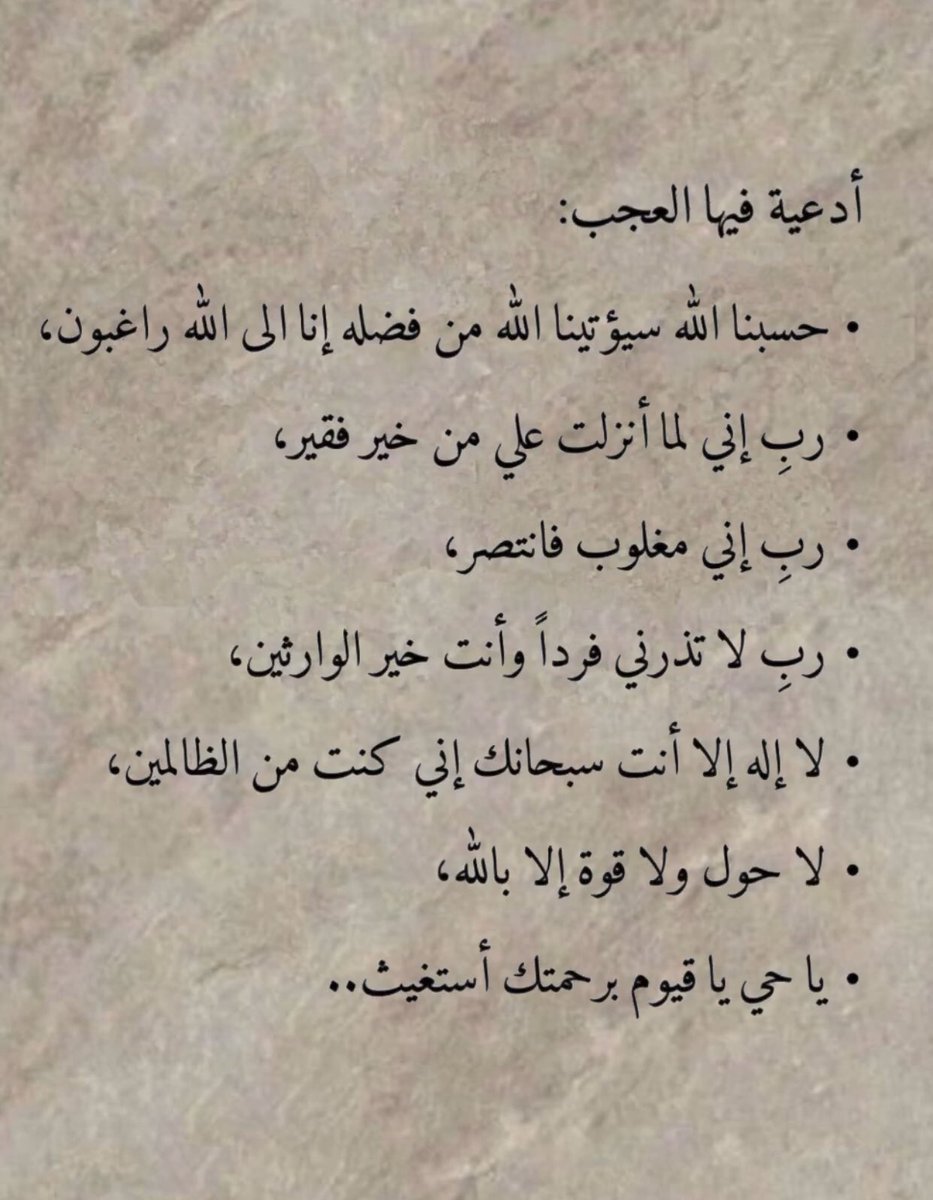 أدعية فيها العجب:
• حسبنا الله سيؤتينا الله من فضله إنا الى الله راغبون،
• ربِ إني لما أنزلت علي من خير فقير،
• ربِ إني مغلوب فانتصر،
• ربِ لا تذرني فرداً وأنت خير الوارثين،
• لا إله إلا أنت سبحانك إني كنت من الظالمين،
• لا حول ولا قوة إلا بالله،
• يا حي يا قيوم برحمتك أستغيث..